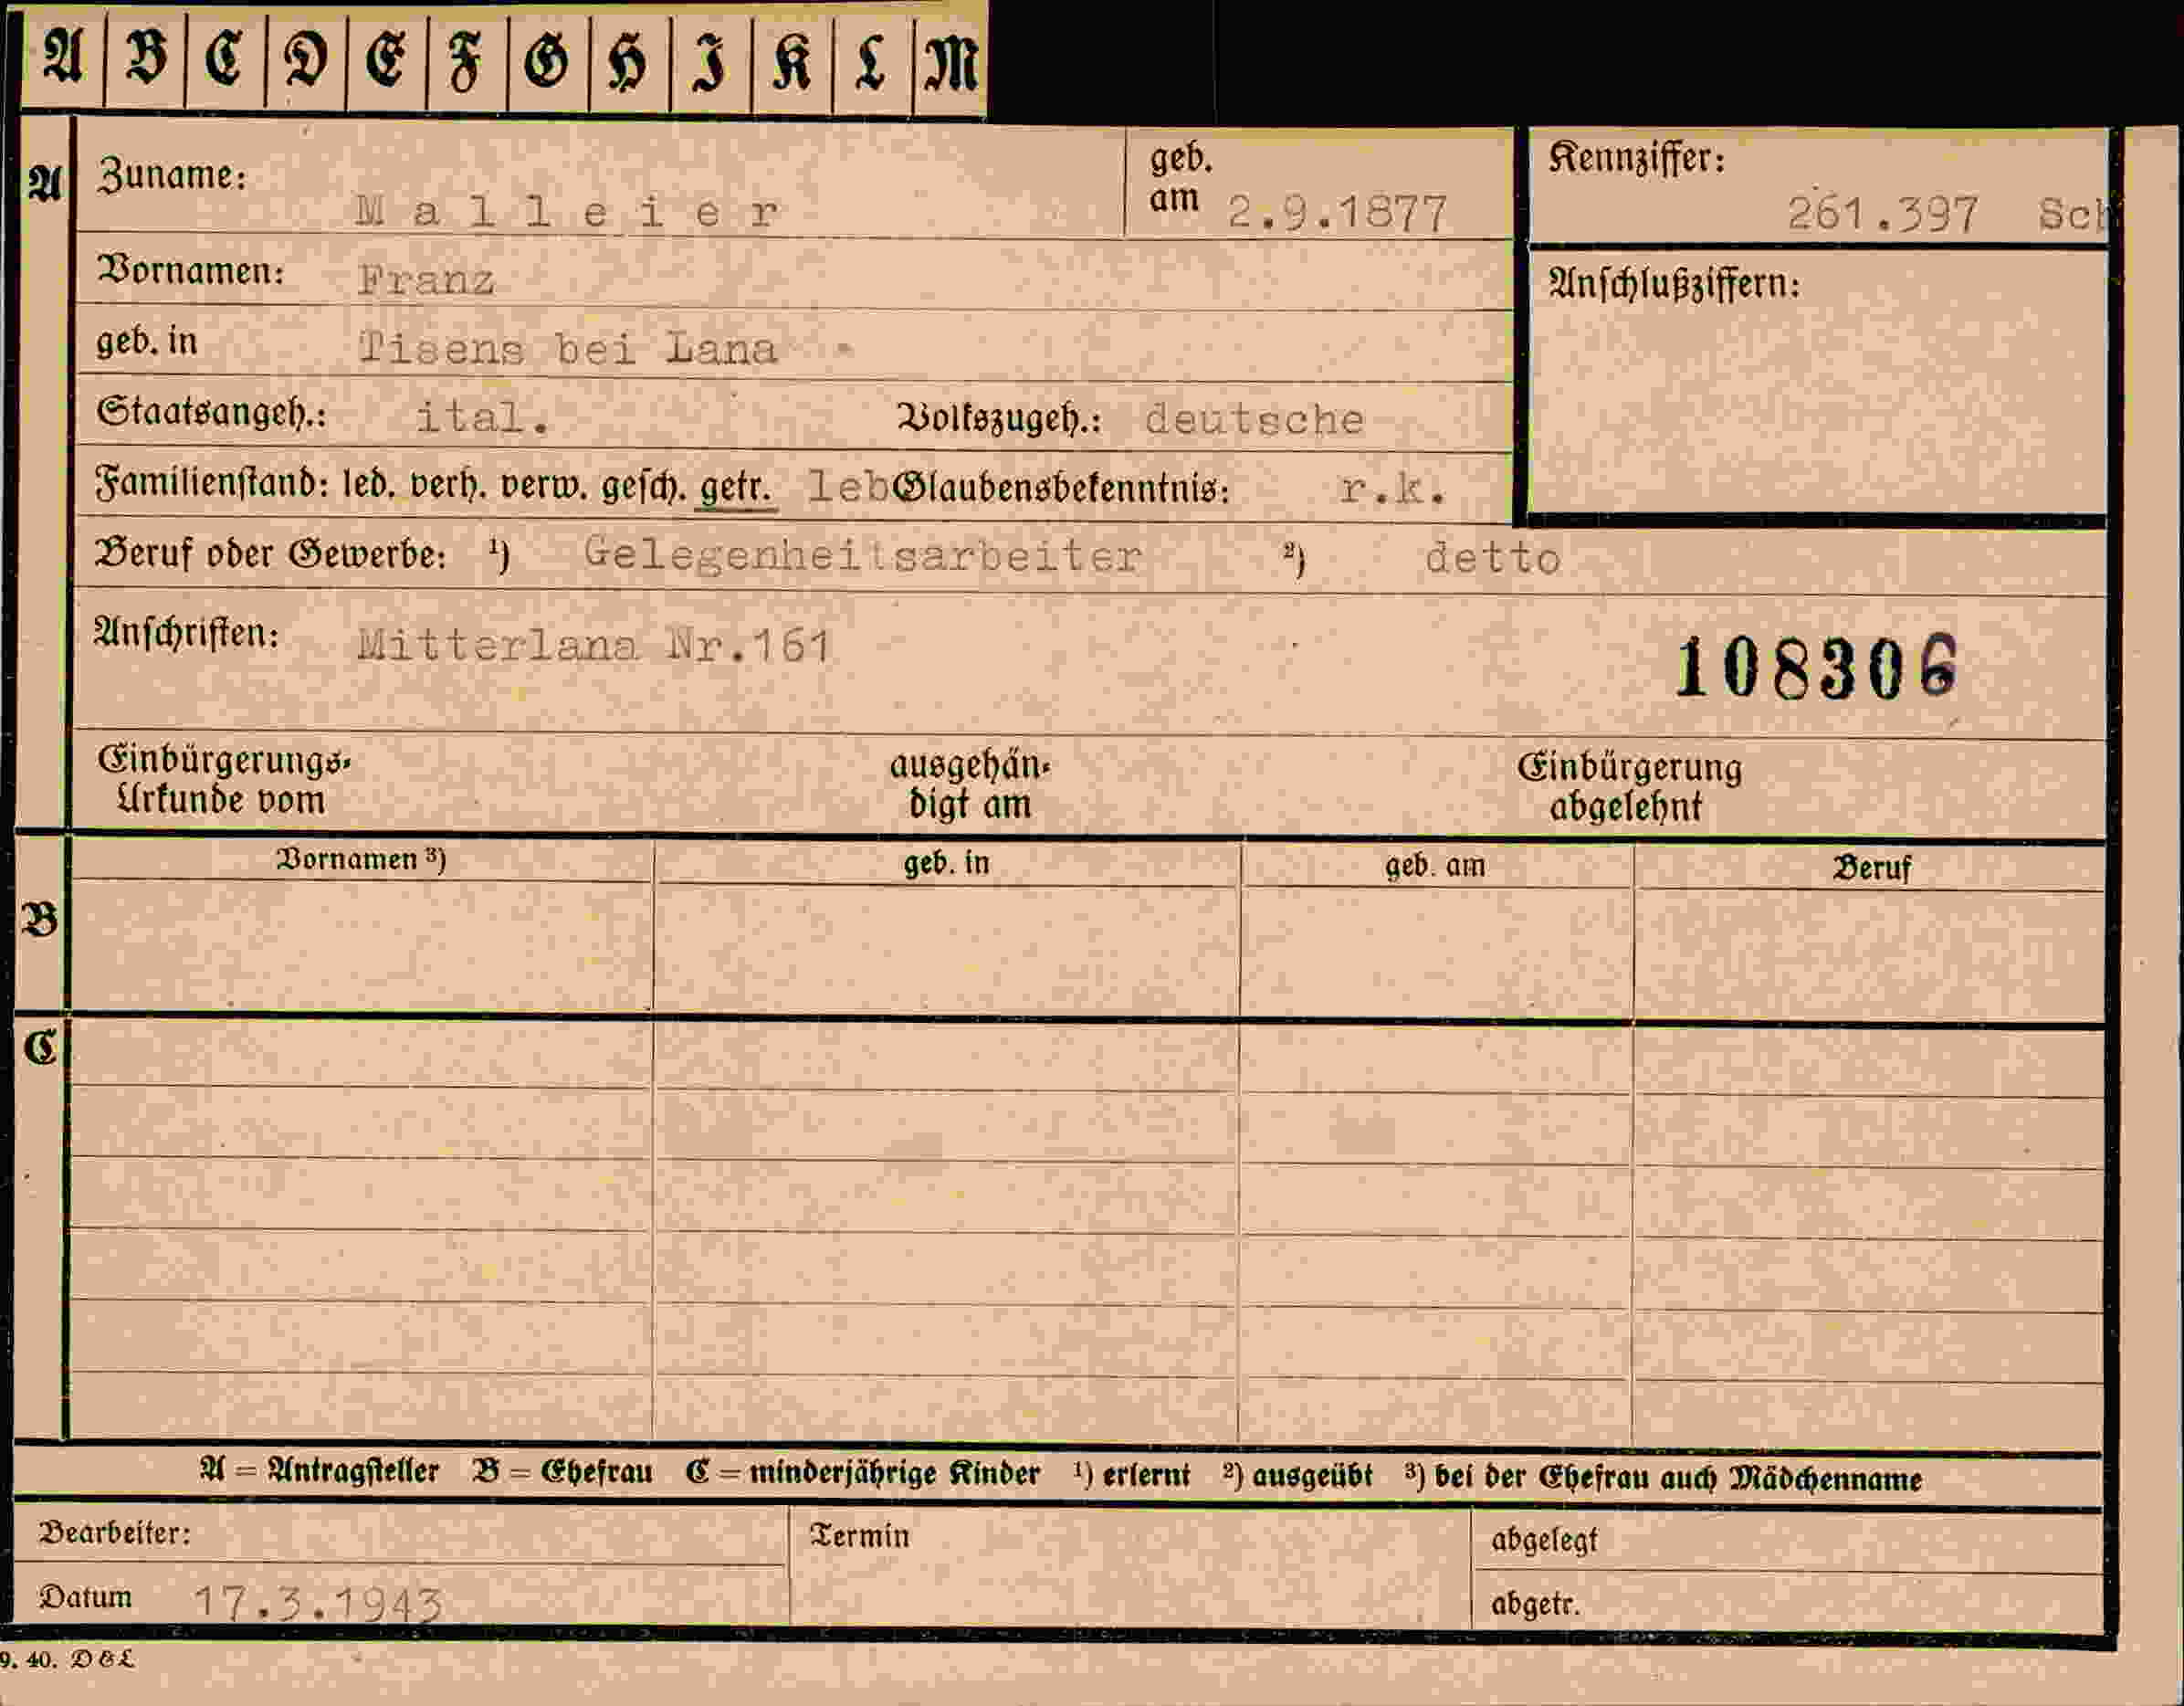 A B C D E F G H I K L M
A Zuname: Malleier geb. am 2.9.1877 Kennziffer: 261.397 Sch
Vornamen: Franz Anschlußziffern:
geb. in Tisens bei Lana
Staatsangeh.: ital. Volkszugeh.: deutsche
Familienstand: led. verh. verw. gesch. getr. leb Glaubensbekenntnis: r.k.
Beruf oder Gewerbe: ¹) Gelegenheitsarbeiter ²) detto
Anschriften: Mitterlana Nr.161 108306
Einbürgerungs-Urkunde vom ausgehändigt am Einbürgerung abgelehnt
Vornamen ³) geb. in geb. am Beruf
B
C
A = Antragsteller B = Ehefrau C = minderjährige Kinder ¹) erlernt ²) ausgeübt ³) bei der Ehefrau auch Mädchenname
Bearbeiter: Termin abgelegt
Datum 17.3.1943 abgetr.
9. 40. D & L